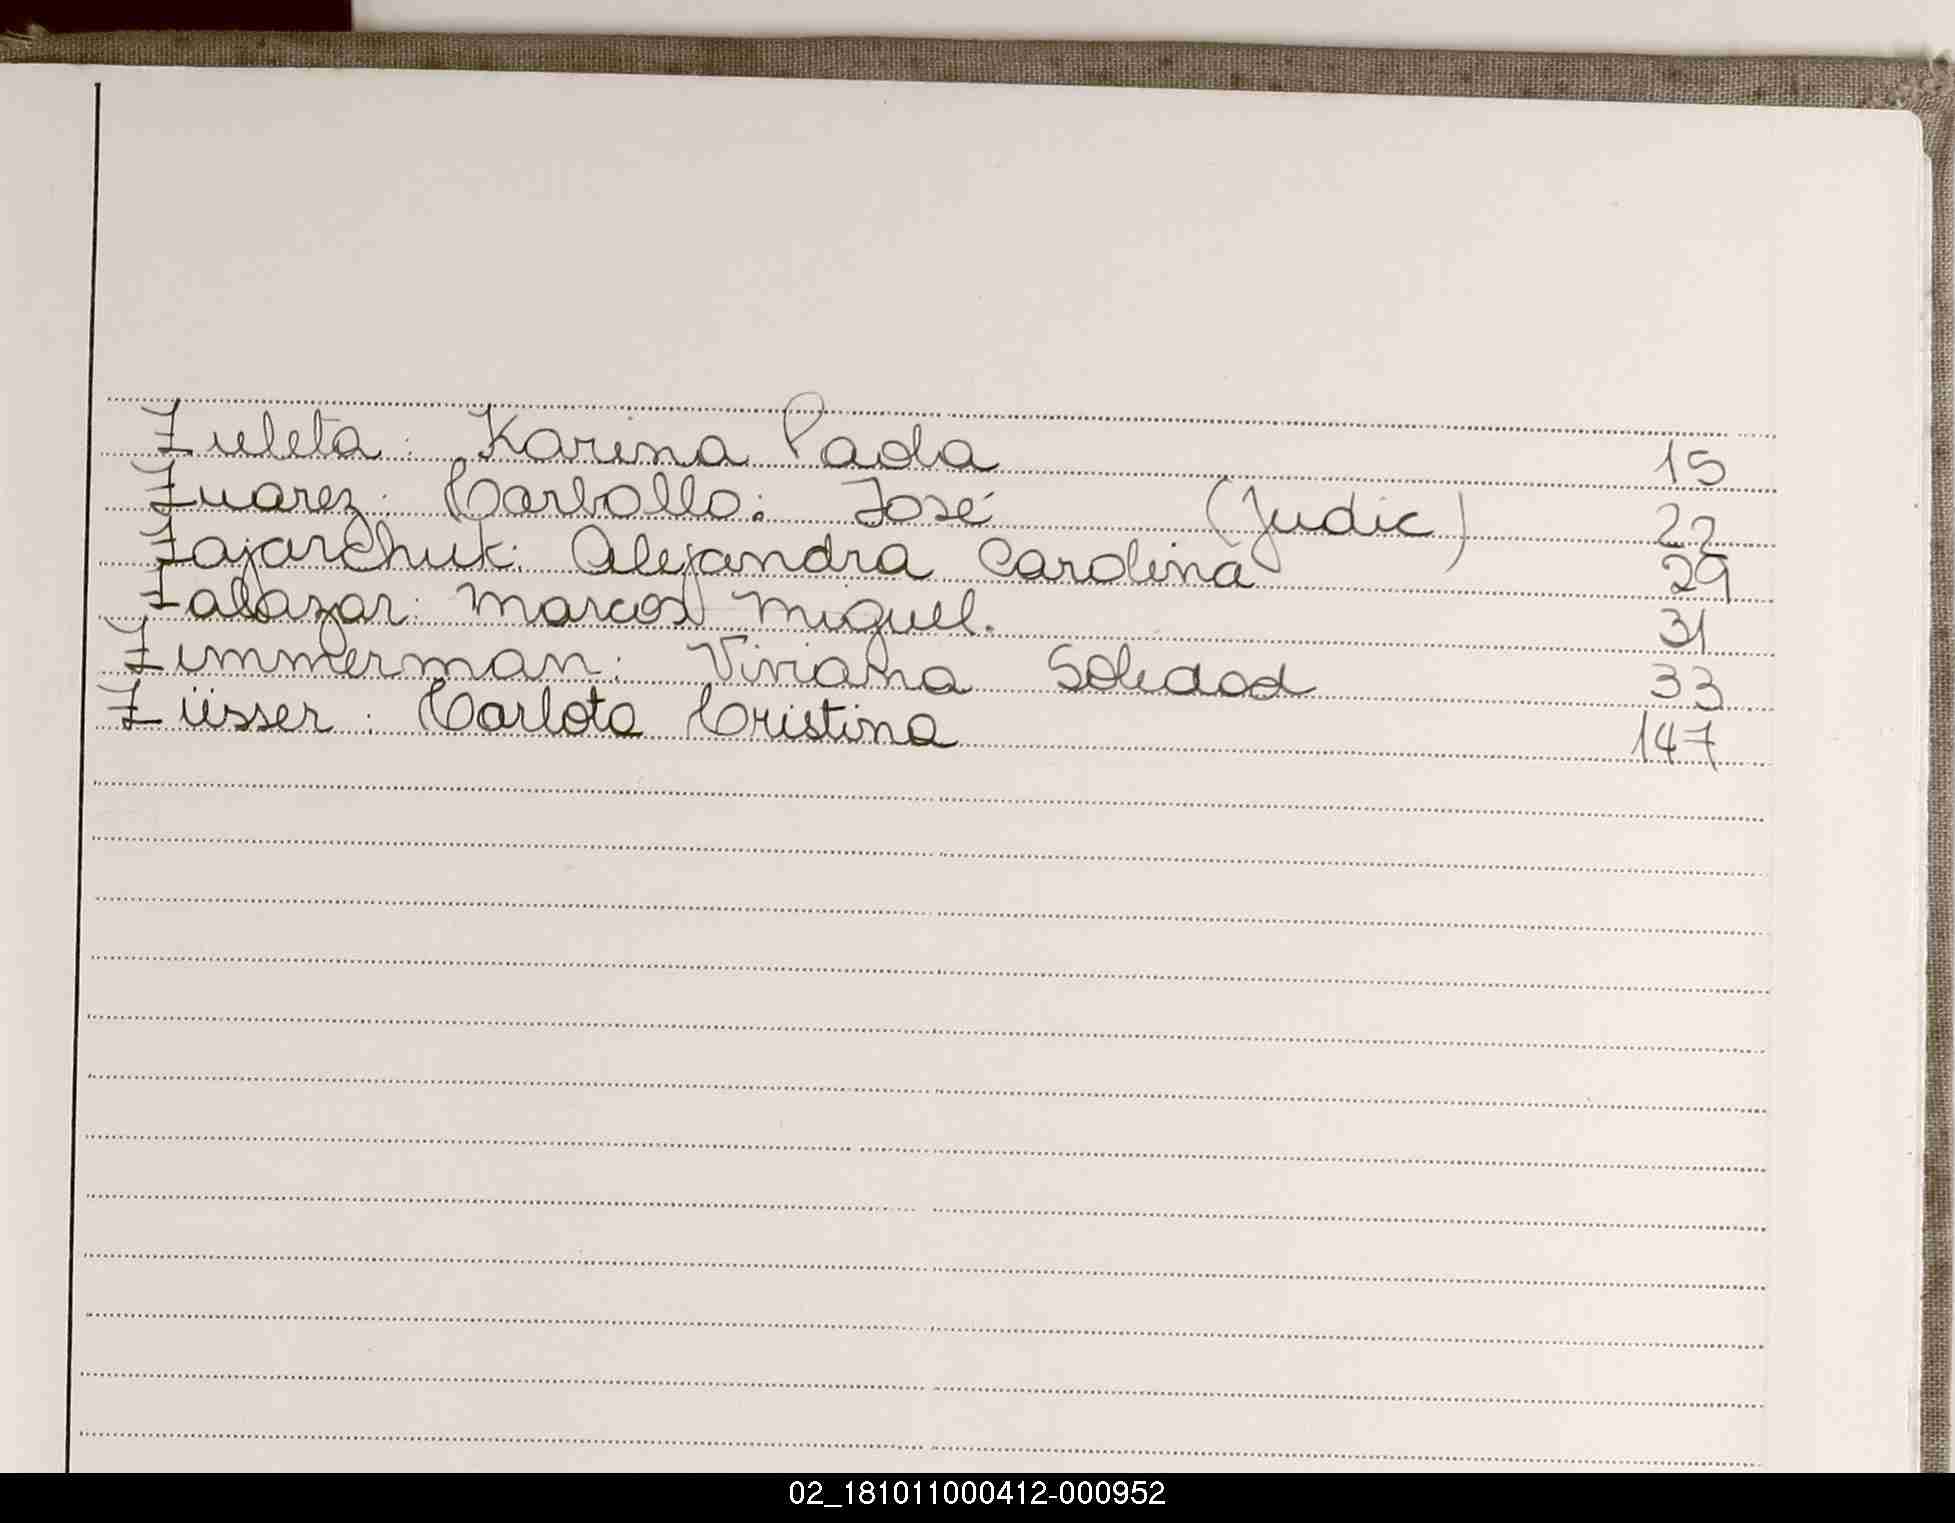 Zuleta: Karina Paola 15
Zuarez: Carballo: José (Judic) 22
Zajarchuk: Alejandra Carolina 29
Zalazar: Marcos Miguel. 31
Zimmerman: Viviana Soledad 33
Züsser: Carlota Cristina 147
02_181011000412-000952